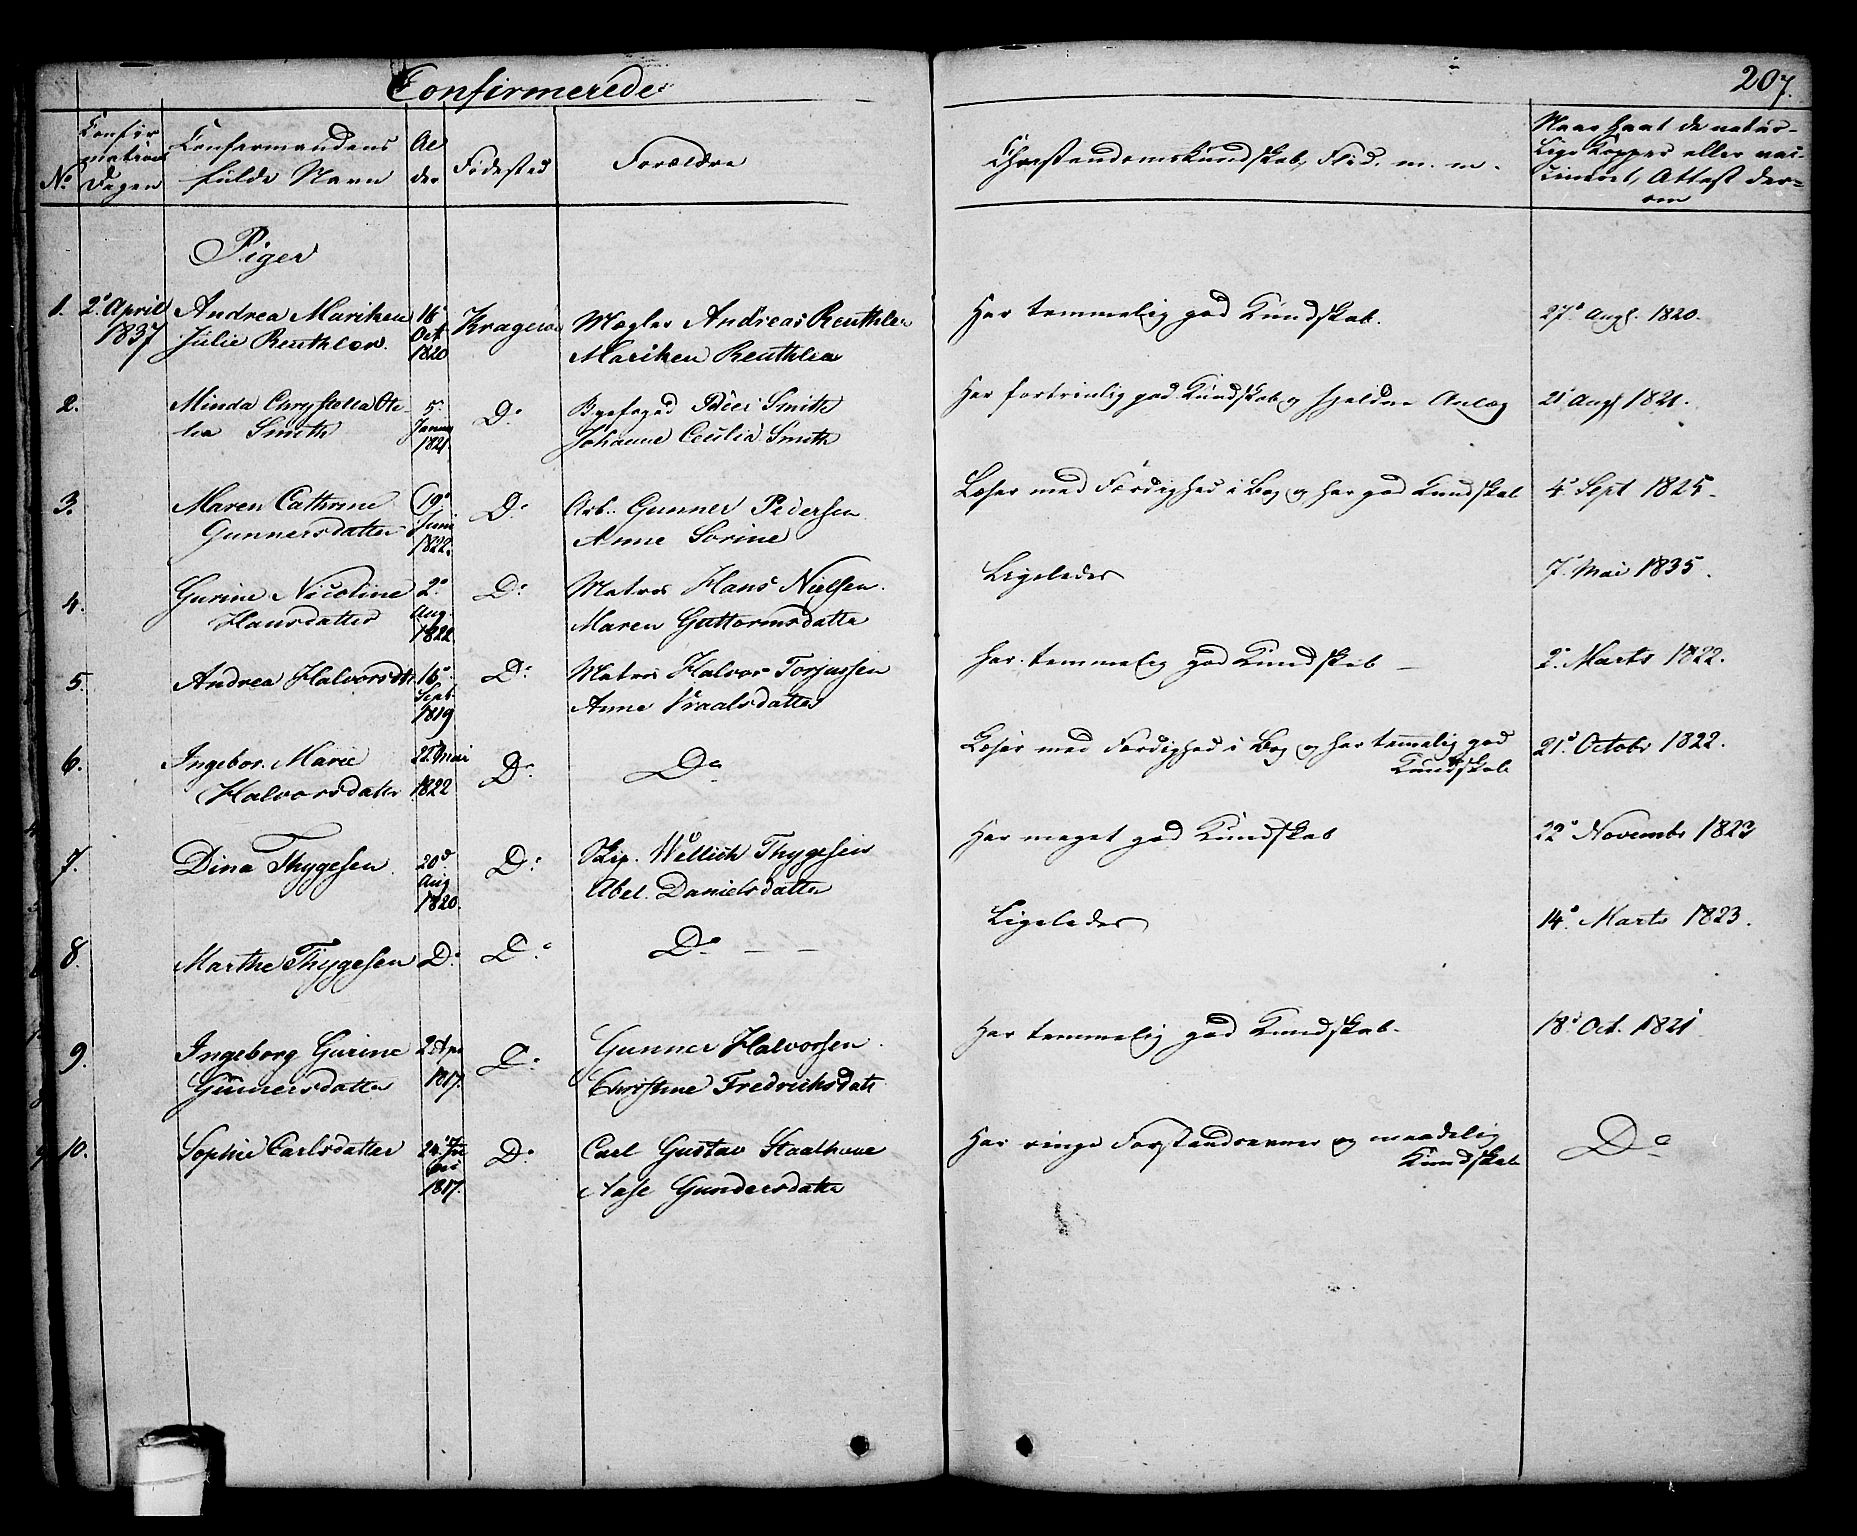 Confirmerede
207.
No
Confir-
mations
Dagen
Confirmandens
fulde Navn
Al
der
Fødested
Forældre
Christendomskundskab, Flid. m. m.
Naar havt de natur-
lige Kopper eller vac-
cineret, Attest der-
om
Piger
1. 2. April 1837 Andrea Mariken 16 Oct 1820 Kragerøe Mægler Andreas Reuthler Har temmelig god Kundskab. 27. Aug. 1820.
Julie Reuthler. Mariken Reuthler
2. Minda Chrystella Ote- 5. Januar 1821 Do Byefoged Smith Har fortrinlig god Kundskab og sjeldne Anlæg 21 Aug 1821.
lia Smith Johanne Cecilia Smith
3. Maren Cathrine 19 Juni 1822. Do Arb. Gunner Pedersen Læser med Færdighed i Bog og har god Kundskab 4. Sept 1825.
Gunnersdatter Anne Sorine
4. Gurine Nicoline 2. Aug. 1822 Do Matros Hans Nielsen. Ligeledes 7. Mai 1835.
Hansdatter Maren Guttormsdatter
5. Andrea Halvorsdtr 16. Sept. 1819 Do Matros Halvor Torjussen har temmelig god Kundskab 2. Marts 1822.
Anne Vraalsdatter
6. Ingebor. Marie Mai 1822 Do Do Læser med Færdighed i Bog og har temmelig god 21. Octobr 1822.
Halvorsdatter Kundskab
7. Dina Thygesen. 20 Aug 1820. Do Skip. Wellich Thygesen Har meget god Kundskab 22. Novembr 1823
Abel. Danielsdatter
8. Marthe Thygesen Do Do Do Ligeledes 14. Marts 1823.
9. Ingeborg Gurine 2 Apr 1817. Do Gunner Halvorsen Har temmelig god Kundskab. 18. Oct. 1821
Gunnersdatter Christine Fredrichsdatr
10. Sophie Carlsdatter 24. 1817. Do Carl Gustav Staalhane Har ringe Forstandsevner og maadelig Do
Aase Gundersdatter Kundskab